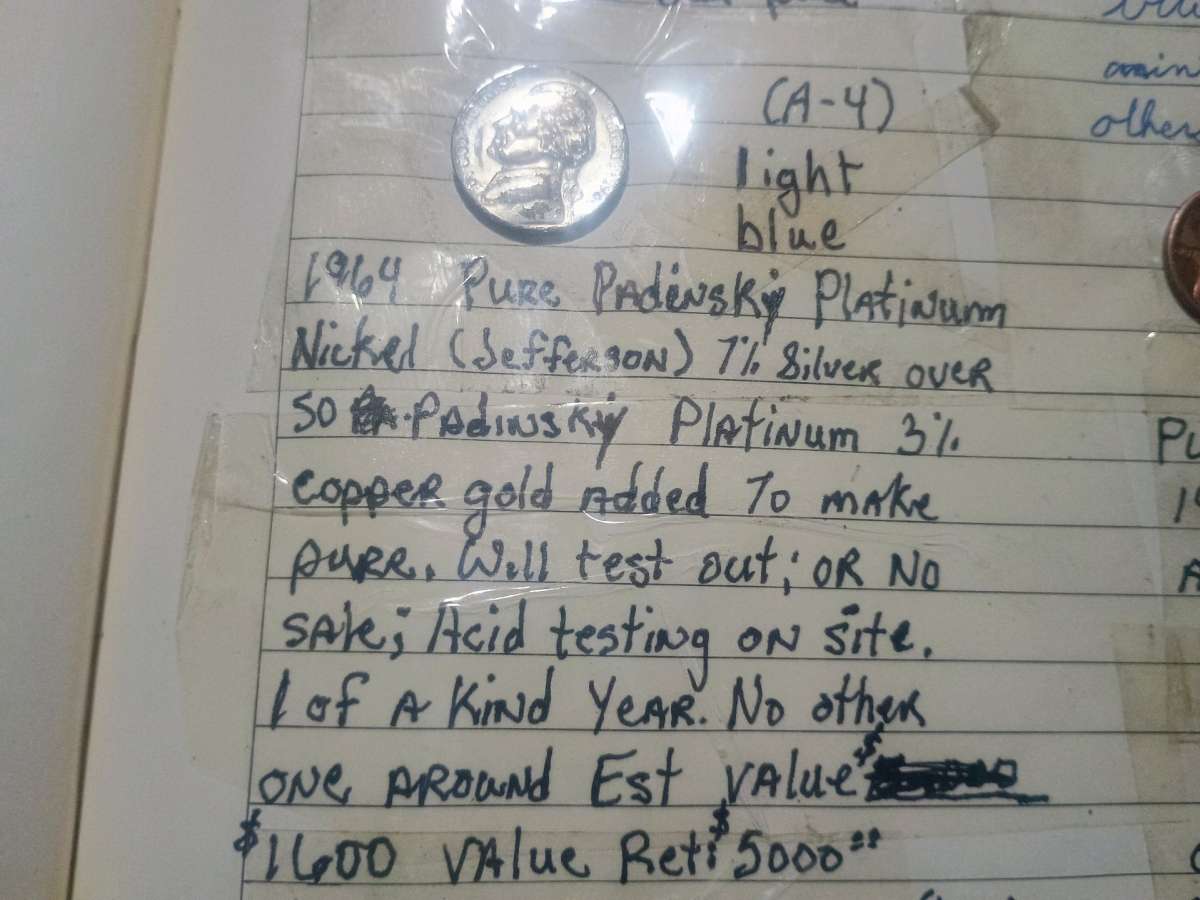 (A-4)
light
blue
1964 Pure Padinsky Platinum
Nickel (Jefferson) 7% Silver over
50 Padinsky Platinum 3%
copper gold Added To make
pure. Will test out; OR No
sale; Acid testing on site.
1 of A Kind Year. No other
one Around Est value $
$1600 Value Ret: $5000.00
other